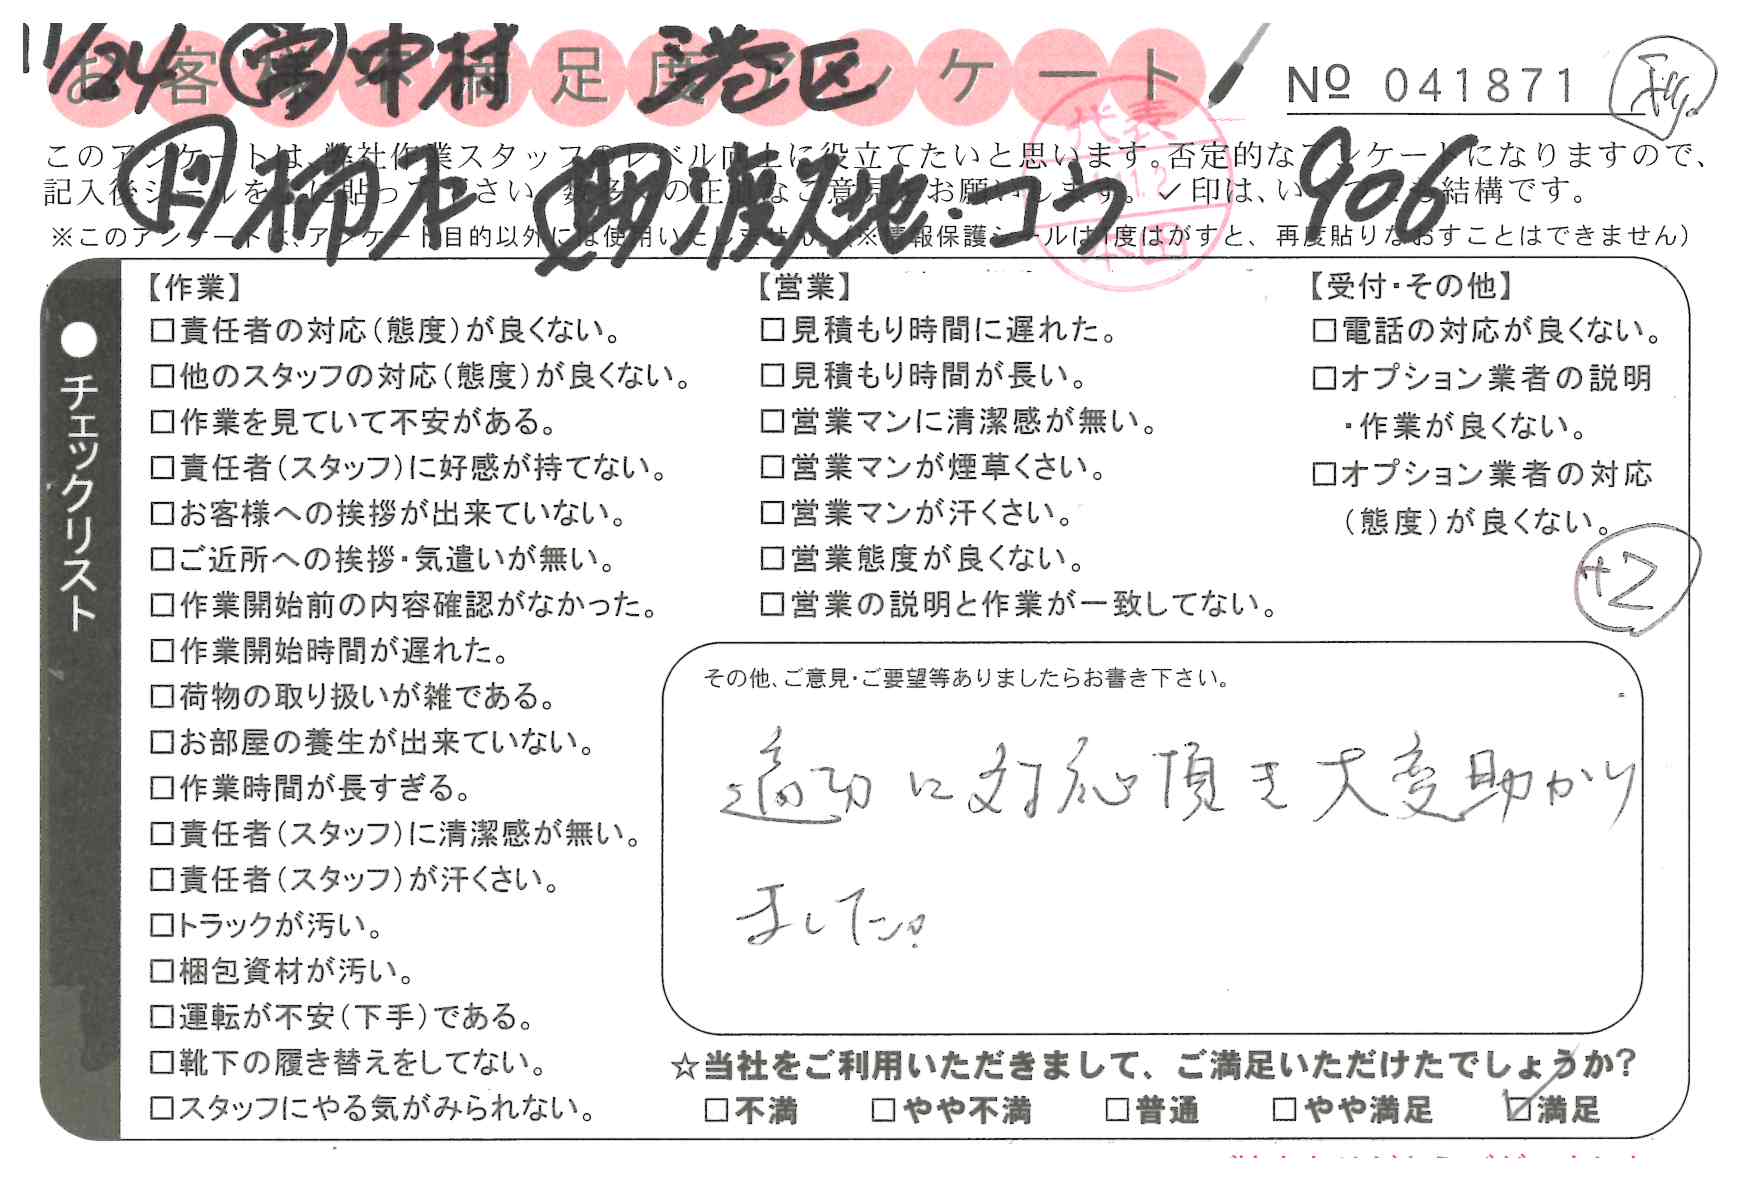 11/24 営 中村 港区
お客様不満足度アンケート
№ 041871
このアンケートは、弊社作業スタッフのレベル向上に役立てたいと思います。否定的なアンケートになりますので、
記入後シールを上に貼って下さい。数多くの正直なご意見をお願いします。✓印は、いくつでも結構です。
※このアンケートは、アンケート目的以外には使用いたしません。(※情報保護シールは1度はがすと、再度貼りなおすことはできません)
柿本
906
代表
本田
●チェックリスト
【作業】
□責任者の対応(態度)が良くない。
□他のスタッフの対応(態度)が良くない。
□作業を見ていて不安がある。
□責任者(スタッフ)に好感が持てない。
□お客様への挨拶が出来ていない。
□ご近所への挨拶・気遣いが無い。
□作業開始前の内容確認がなかった。
□作業開始時間が遅れた。
□荷物の取り扱いが雑である。
□お部屋の養生が出来ていない。
□作業時間が長すぎる。
□責任者(スタッフ)に清潔感が無い。
□責任者(スタッフ)が汗くさい。
□トラックが汚い。
□梱包資材が汚い。
□運転が不安(下手)である。
□靴下の履き替えをしてない。
□スタッフにやる気がみられない。
【営業】
□見積もり時間に遅れた。
□見積もり時間が長い。
□営業マンに清潔感が無い。
□営業マンが煙草くさい。
□営業マンが汗くさい。
□営業態度が良くない。
□営業の説明と作業が一致してない。
【受付・その他】
□電話の対応が良くない。
□オプション業者の説明
・作業が良くない。
□オプション業者の対応
(態度)が良くない。
+2
その他、ご意見・ご要望等ありましたらお書き下さい。
適切に対応頂き大変助かり
ました。
☆当社をご利用いただきまして、ご満足いただけたでしょうか?
□不満 □やや不満 □普通 □やや満足 ☑満足